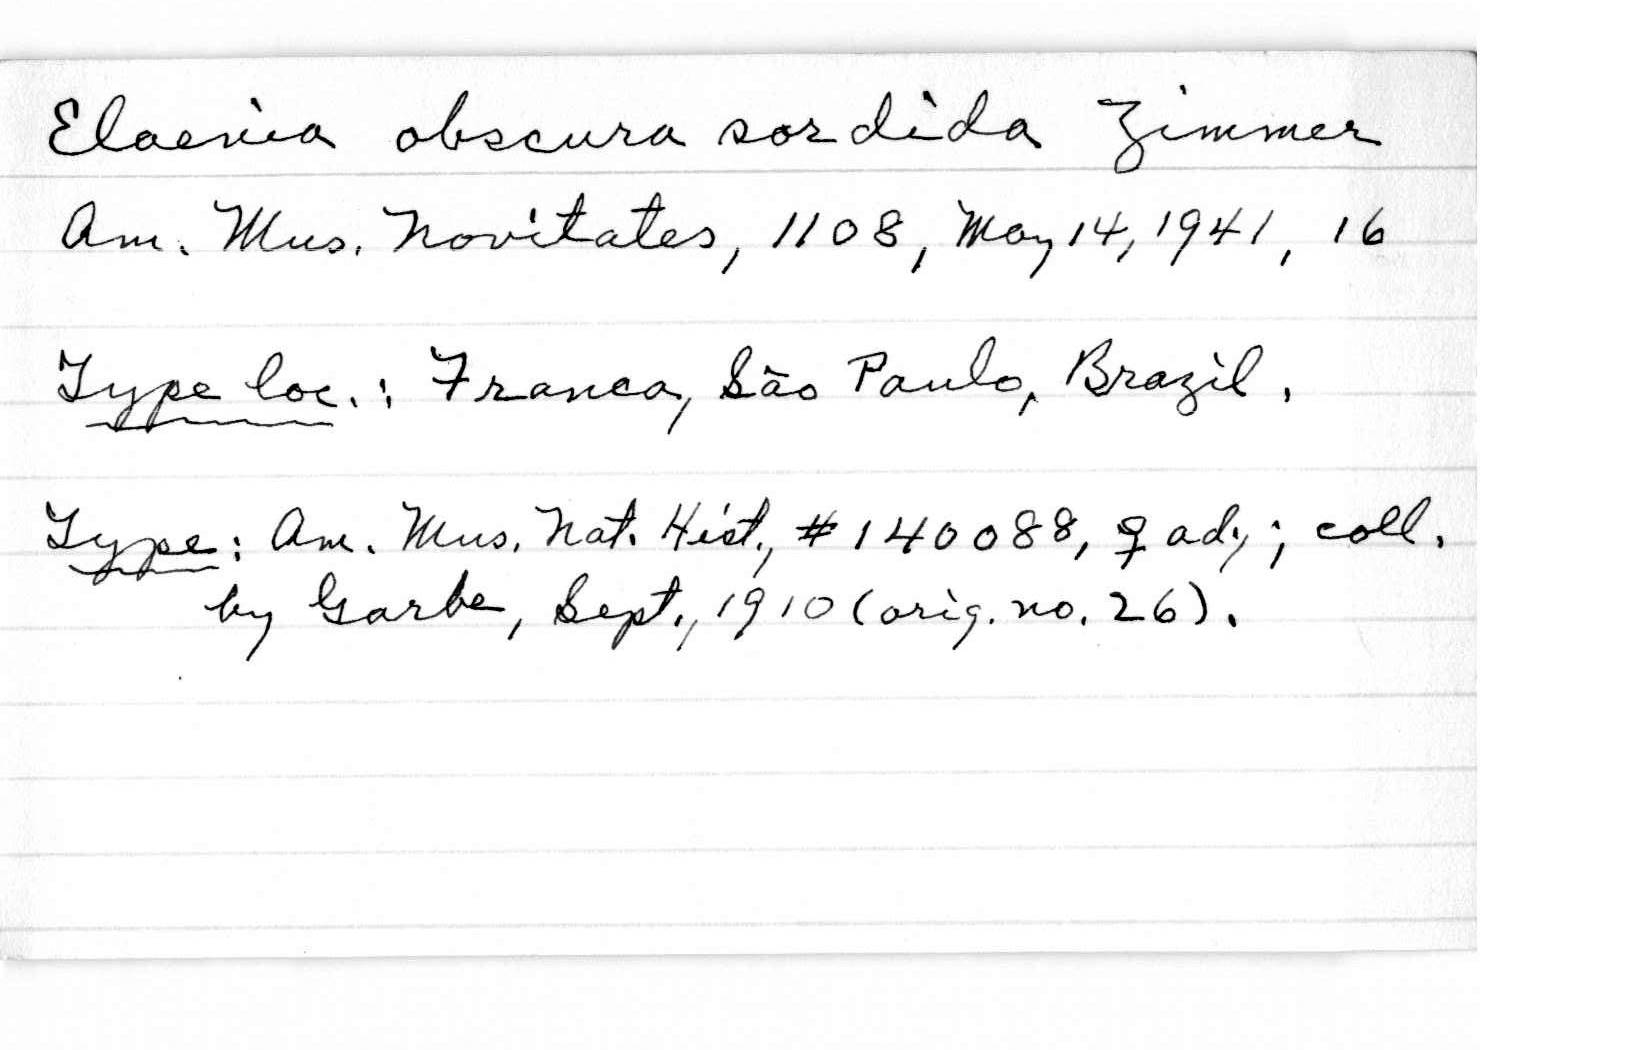 Elaenia obscura sordida Zimmer
Am. Mus. Novitates, 1108, May 14, 1941, 16
Type loc.: Franca, São Paulo, Brazil.
Type: Am. Mus. Nat. Hist., #140088, ♀ ad.; coll.
by Garbe, Sept., 1910 (orig. no. 26).